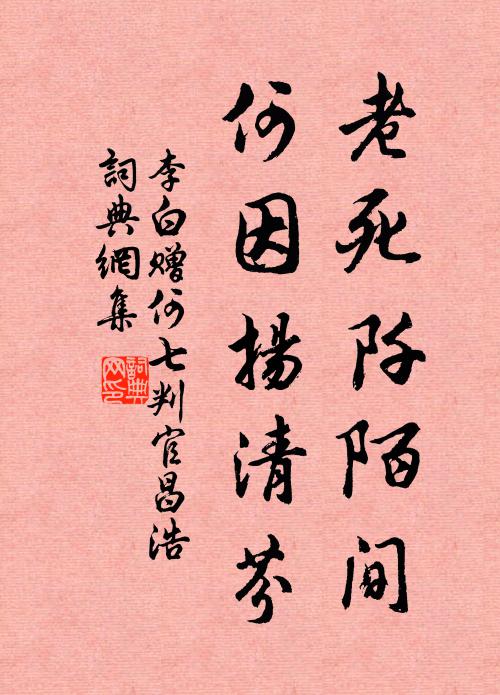 老死阡陌間
何因揚清芬
李白赠何七判官昌浩
詞典網集
詞典網印